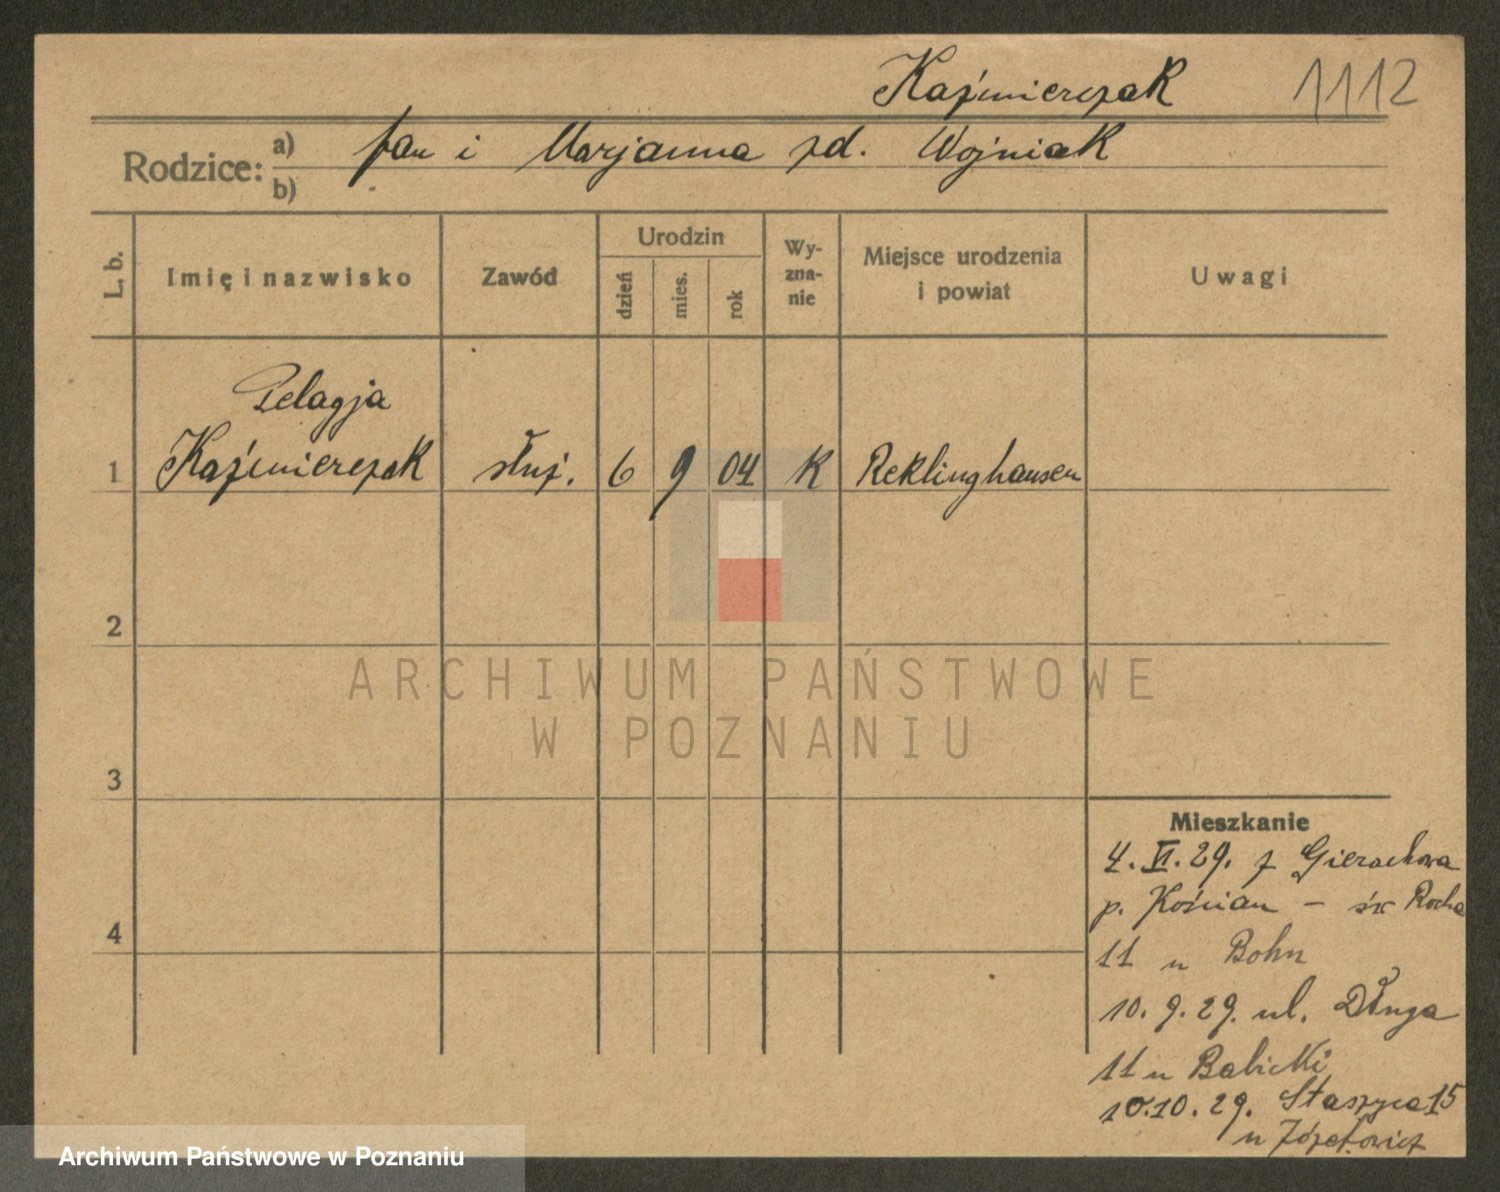 Kaźmierczak 1112
Rodzice: a) Jan i Marjanna zd. Woźniak
b)
L. b.
Imię i nazwisko
Zawód
Urodzin
dzień
mies.
rok
Wy-
zna-
nie
Miejsce urodzenia
i powiat
Uwagi
Pelagja
1 Kaźmierczak służ. 6 9 04 K Reklinghausen
2
3
4
ARCHIWUM PAŃSTWOWE
W POZNANIU
Mieszkanie
4. VI. 29. z Gierachowa
p. Kościan - św Rocha
11 u Bohn
10. 9. 29. ul. Długa
11 u Babicki
10.10.29. Staszyca 15
u Józefowicz
Archiwum Państwowe w Poznaniu